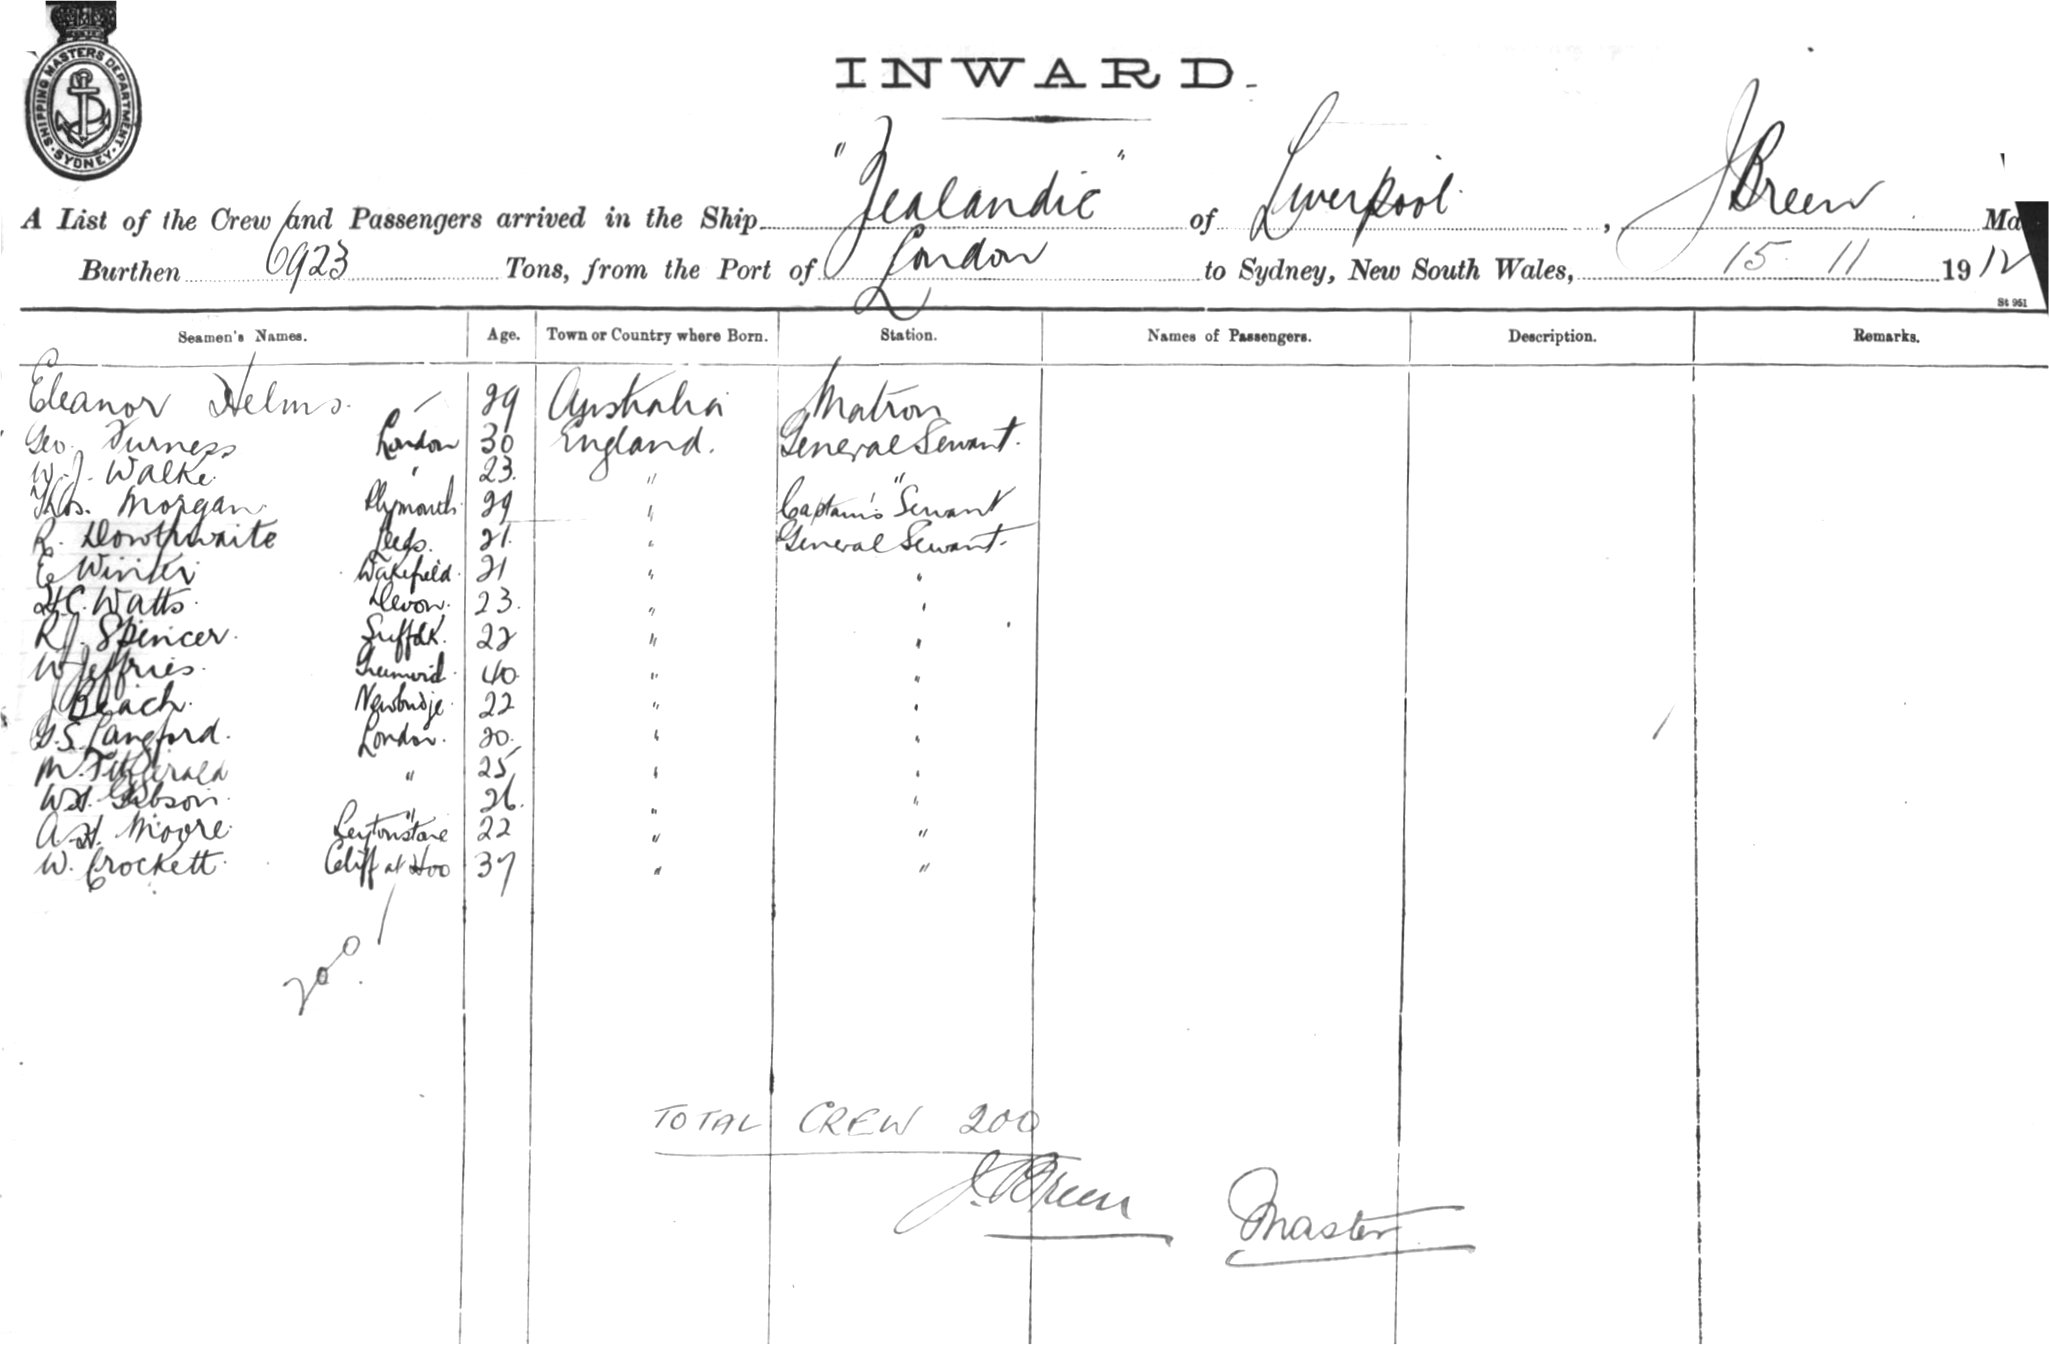 SHIPPING MASTERS DEPARTMENT
SYDNEY
INWARD.
A List of the Crew and Passengers arrived in the Ship "Zealandic" of Liverpool, J Breen Ma
Burthen 6923 Tons, from the Port of London to Sydney, New South Wales, 15 11 1912
St 951
Seamen's Names. Age. Town or Country where Born. Station. Names of Passengers. Description. Remarks.
Eleanor Helms. 29 Australia Matron
Geo. Furness London 30 England. General Servant.
W. J. Walke " 23 " "
Thos. Morgan Plymouth 29 " Captain's Servant
R. Dowthwaite Leeds. 21 " General Servant.
E Winter Wakefield 21 " "
H.C. Watts Devon. 23. " "
R J. Spencer Suffolk. 22 " "
W Jeffries 40 " "
J Beach. Newbridge 22 " "
G.S. Langford. London. 20 " "
M. Fitzgerald " 25 " "
W.H. Gibson. " 26. " "
A.H. Moore Leytonstone 22 " "
W. Crockett. Cliff at Hoo 37 " "
200
TOTAL CREW 200
J. Breen Master